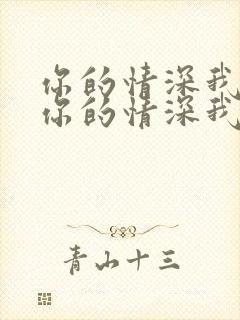 你的情深我
你的情深我
青山十三